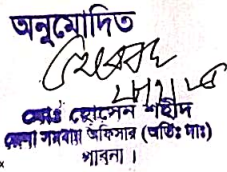 অনুমোদিত
মোঃ হোসেন শহীদ
জেলা সমবায় অফিসার (অতিঃ দাঃ)
পাবনা ।